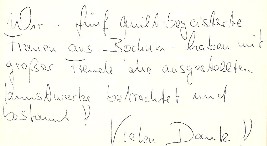 Wir, fünf quilt begeisterte
Frauen aus Bochum haben mit
großer Freude die ausgestellten
Kunstwerke betrachtet und
bestaunt !!
Vielen Dank !!